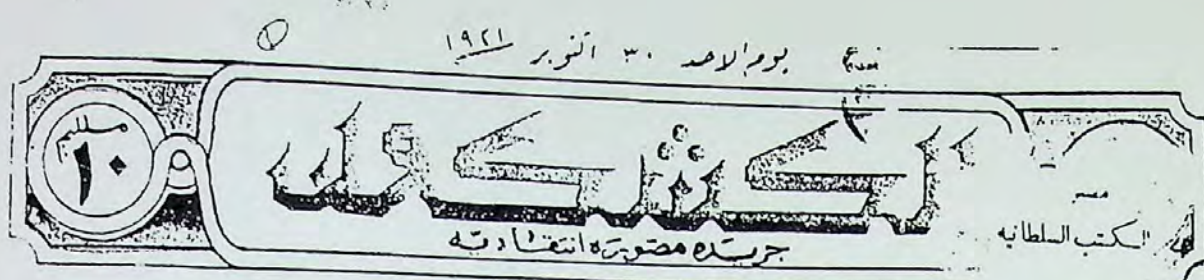 يوم الاحد ٣٠ اكتوبر ١٩٢١
الكشكول
جريدة مصورة انتقادية
١٠
مليم
مصر
الكتب السلطانية